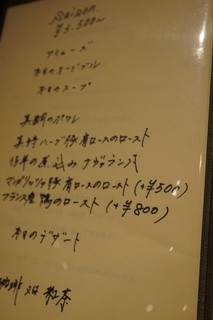 Saison
¥3,500～
アミューズ
本日のオードブル
本日のスープ
真鯛のポワレ
真時ハーブ豚肩ロースのロースト
仔羊の煮込み ナヴァラン風
マンガリッツァ豚肩ロースのロースト (+¥500)
フランス産 鴨のロースト (+¥800)
本日のデザート
珈琲 又は 紅茶